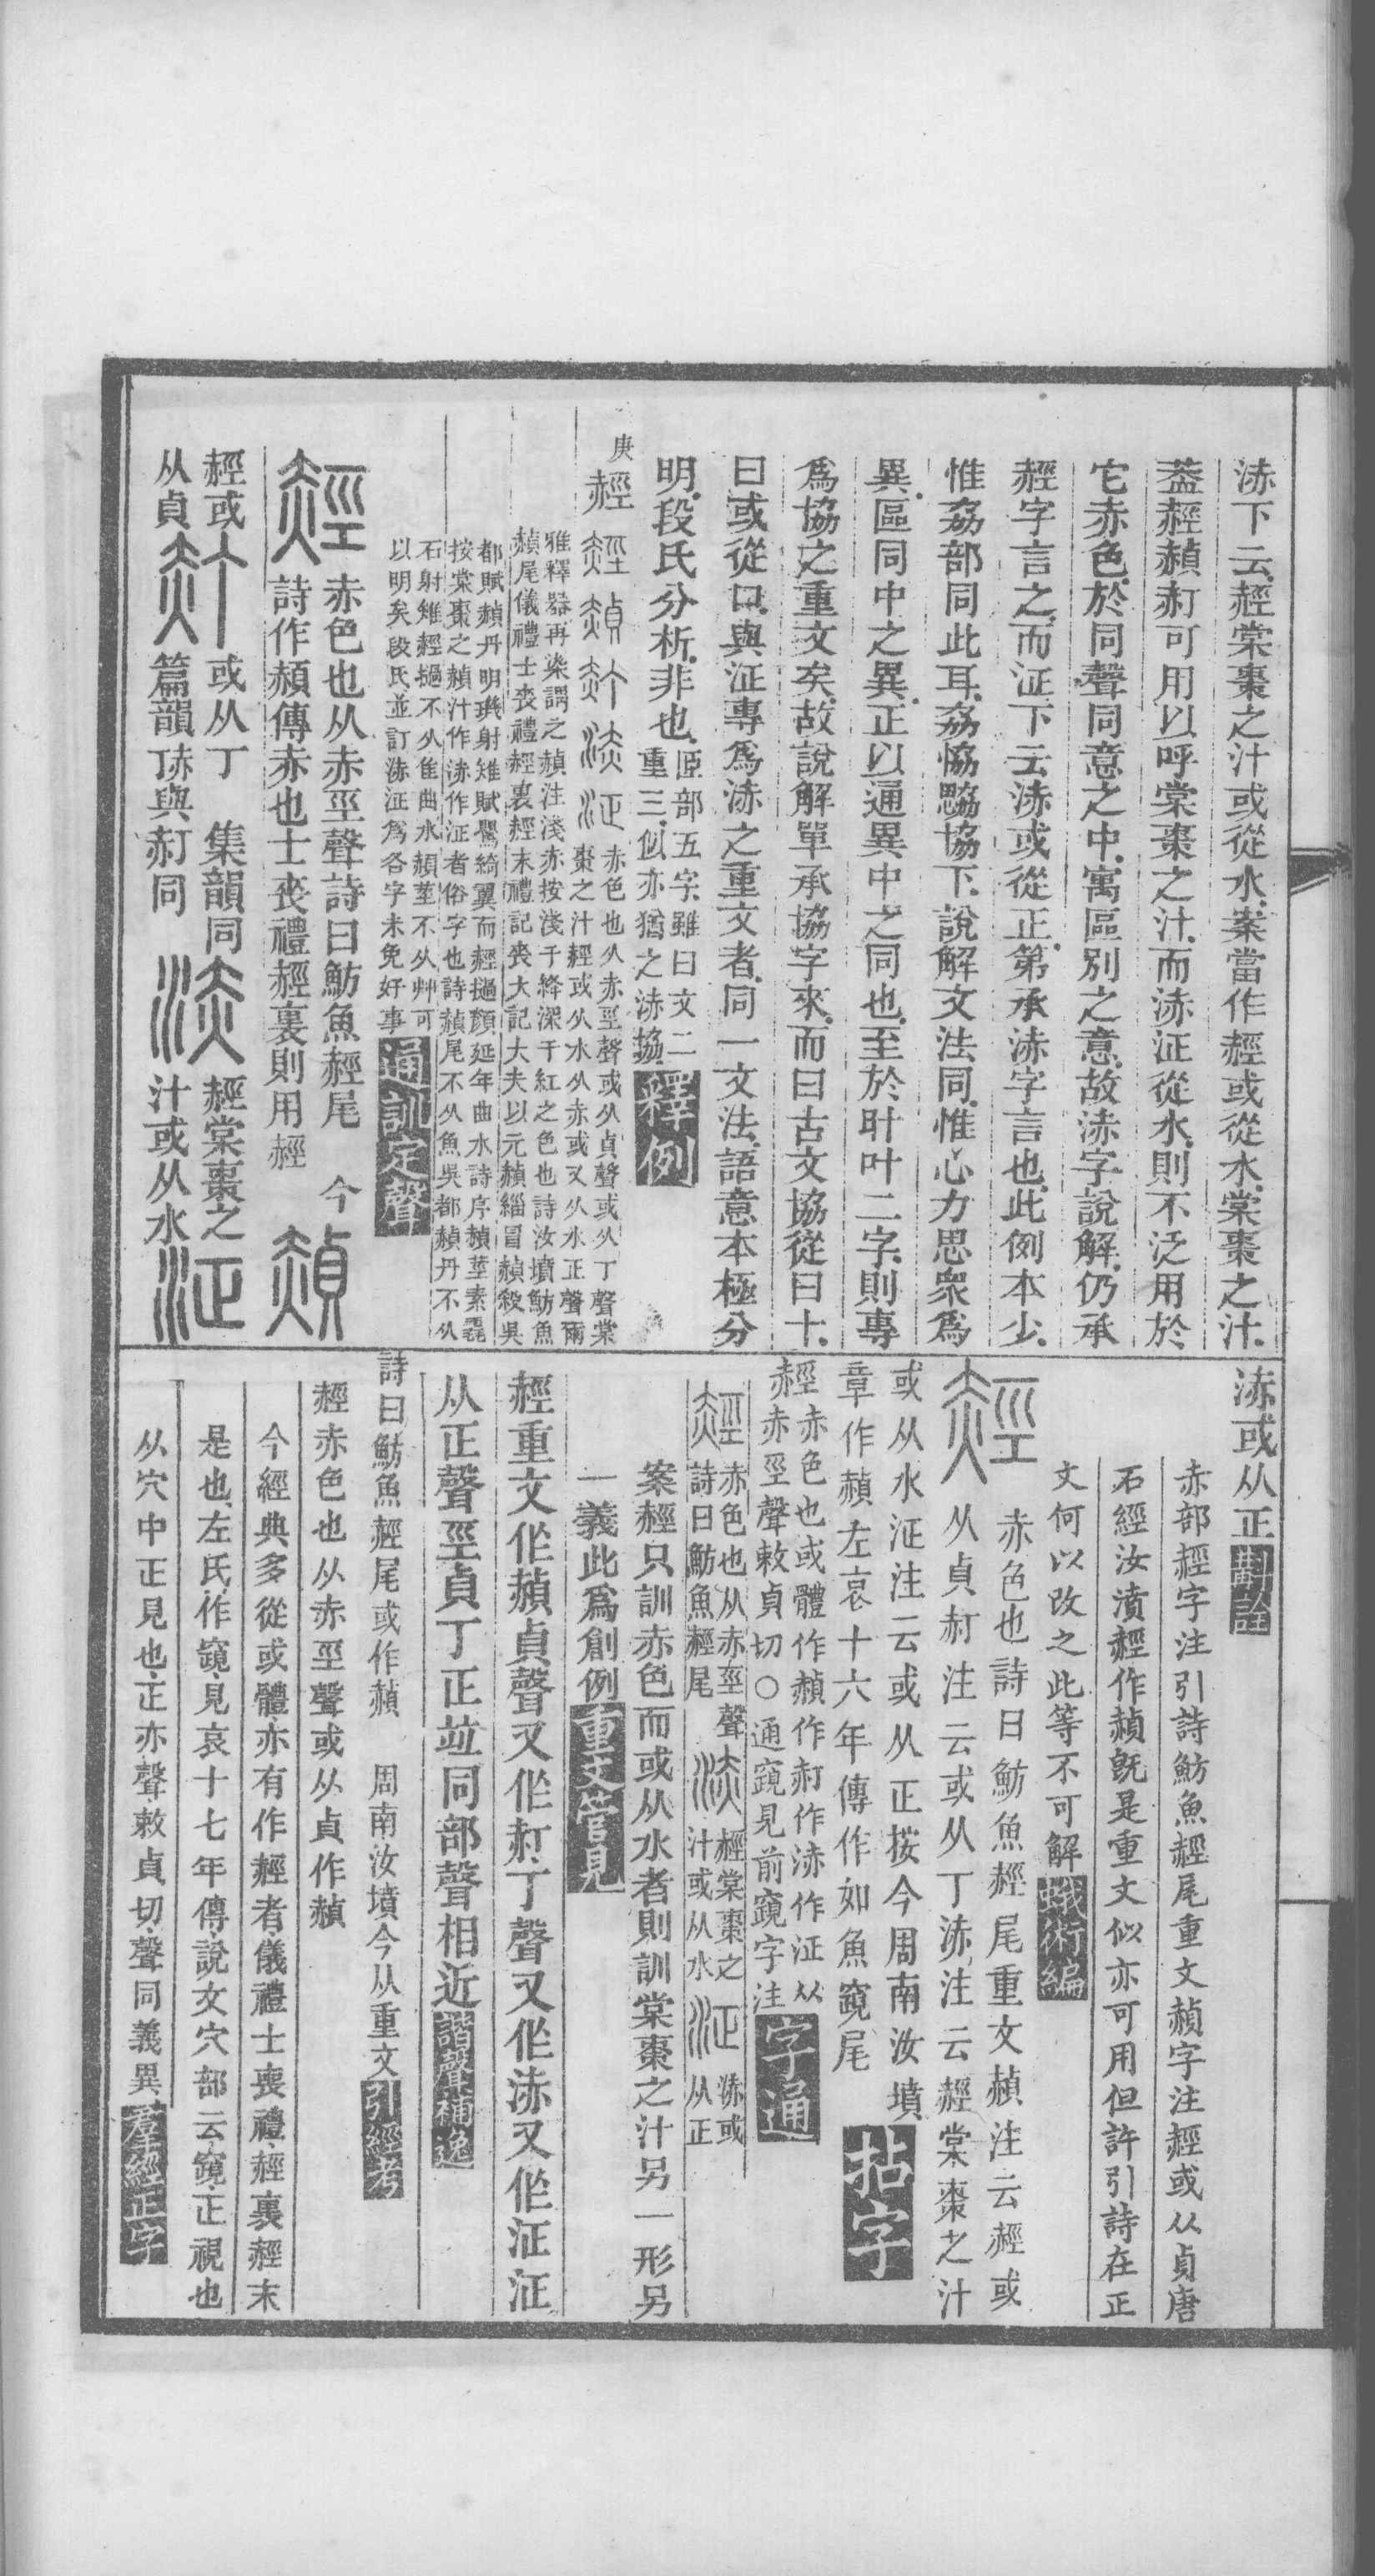 浾下云䞓棠棗之汁或從水案當作䞓或從水棠棗之汁
葢䞓赬䞔可用以呼棠棗之汁而浾泟從水則不泛用於
它赤色於同聲同意之中寓區別之意故浾字說解仍承
䞓字言之而泟下云浾或從正第承浾字言也此例本少
惟劦部同此耳劦恊勰協下說解文法同惟心力思衆爲
異區同中之異正以通異中之同也至於叶叶二字則專
爲協之重文矣故說解單承協字來而曰古文協從曰十
曰或從口與泟專爲浾之重文者同一文法語意本極分
明段氏分析非也
匝部五字雖曰文二
重三似亦猶之浾協
釋例
庚
䞓
赤色也从赤巠聲或从貞聲或从丁聲棠
棗之汁䞓或从水从赤或又从水正聲爾
雅釋器再染謂之赬注淺赤按淺于絳深于紅之色也詩汝墳魴魚
赬尾儀禮士喪禮䞓裏䞓末禮記喪大記大夫以元赬緇冒赬殺吳
都賦赬丹明璣射雉賦鷖綺翼而䞓撾顏延年曲水詩序赬莖素毳
按棠棗之赬汁作浾作泟者俗字也詩赬尾不从魚吳都赬丹不从
石射雉䞓撾不从隹曲水赬莖不从艸可
以明矣段氏並訂浾泟爲各字未免好事
通訓定聲
赤色也从赤巠聲詩曰魴魚䞓尾 今
詩作赬傳赤也士喪禮䞓裏則用䞓
䞓或
从貞
或从丁 集韻同
篇韻𧹛與䞔同
䞓棠棗之
汁或从水
浾或从正
斠詮
赤部䞓字注引詩魴魚䞓尾重文赬字注䞓或从貞唐
石經汝濆䞓作赬旣是重文似亦可用但許引詩在正
文何以改之此等不可解
蛾術編
赤色也詩曰魴魚䞓尾重文赬注云䞓或
从貞䞔注云或从丁浾注云䞓棠棗之汁
或从水泟注云或从正按今周南汝墳
章作赬左哀十六年傳作如魚竀尾
拈字
䞓赤色也或體作赬作䞔作浾作泟从
赤巠聲敕貞切○通竀見前竀字注
字通
赤色也从赤巠聲
詩曰魴魚䞓尾
䞓棠棗之
汁或从水
浾或
从正
案䞓只訓赤色而或从水者則訓棠棗之汁另一形另
一義此爲創例
重文管見
䞓重文作赬貞聲又作䞔丁聲又作浾又作泟泟
从正聲巠貞丁正竝同部聲相近
諧聲補逸
詩曰魴魚䞓尾或作赬 周南汝墳今从重文
引經考
䞓赤色也从赤巠聲或从貞作赬
今經典多從或體亦有作䞓者儀禮士喪禮䞓裏䞓末
是也左氏作竀見哀十七年傳說文穴部云竀正視也
从穴中正見也正亦聲敕貞切聲同義異
羣經正字